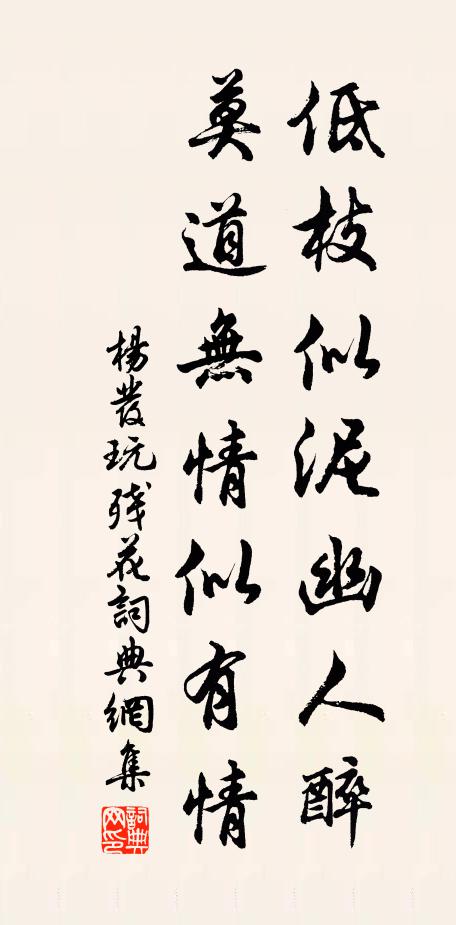 低枝似泥幽人醉
莫道無情似有情
楊發玩残花詞典網集
詞典
网印